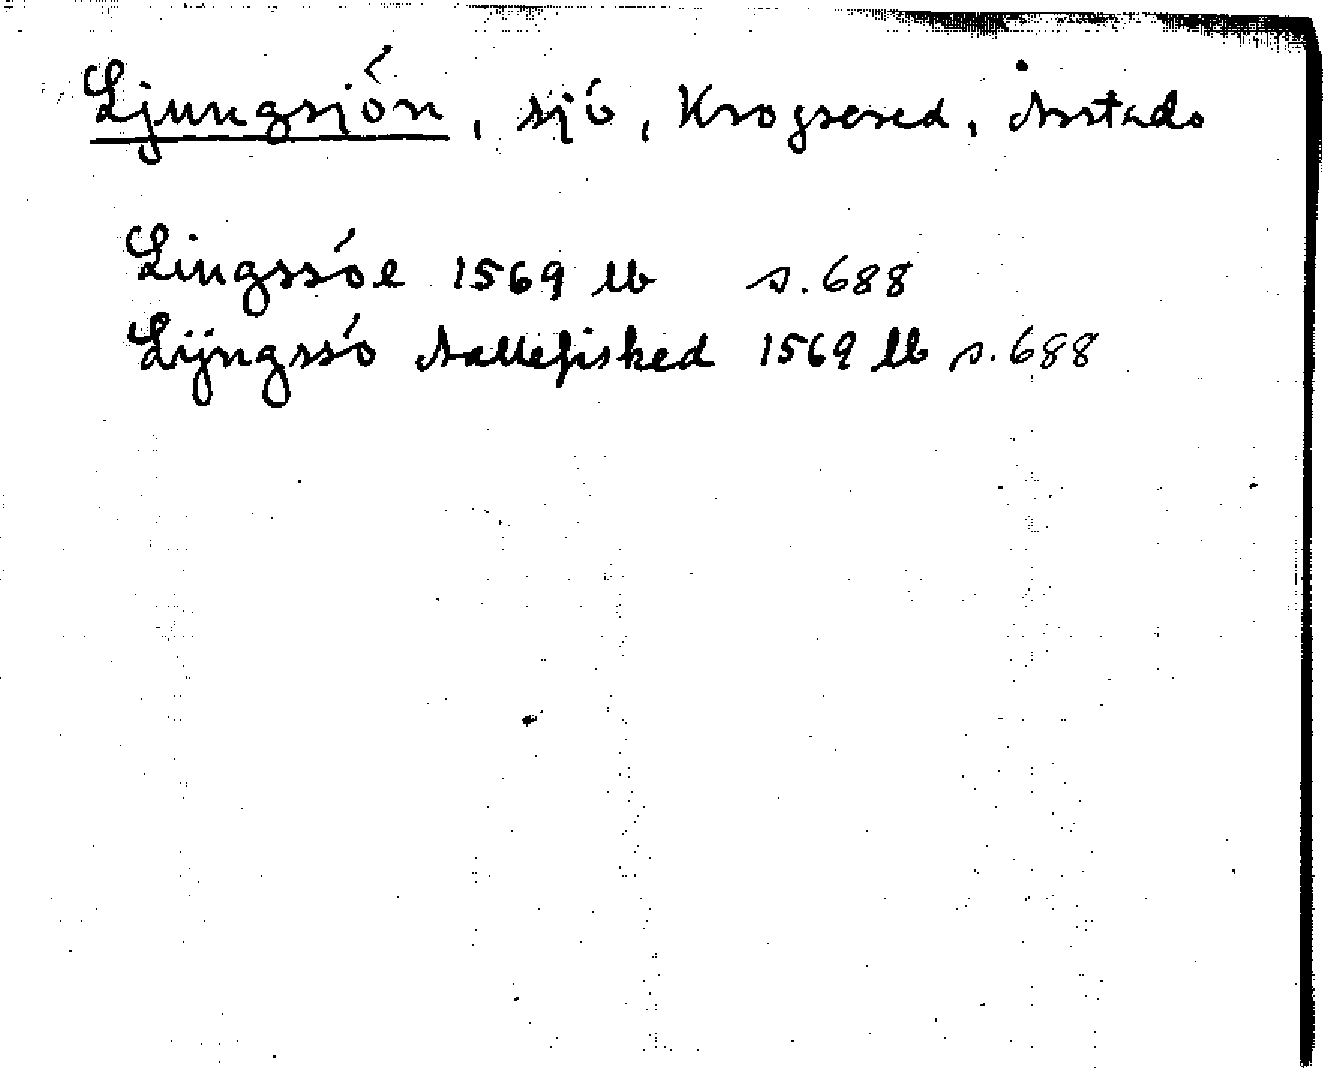 Ljungsjön, sjö, Krogsered, Årstads
Lingssöe 1569 lb s. 688
Lijngssö Aallefisked 1569 lb s. 688